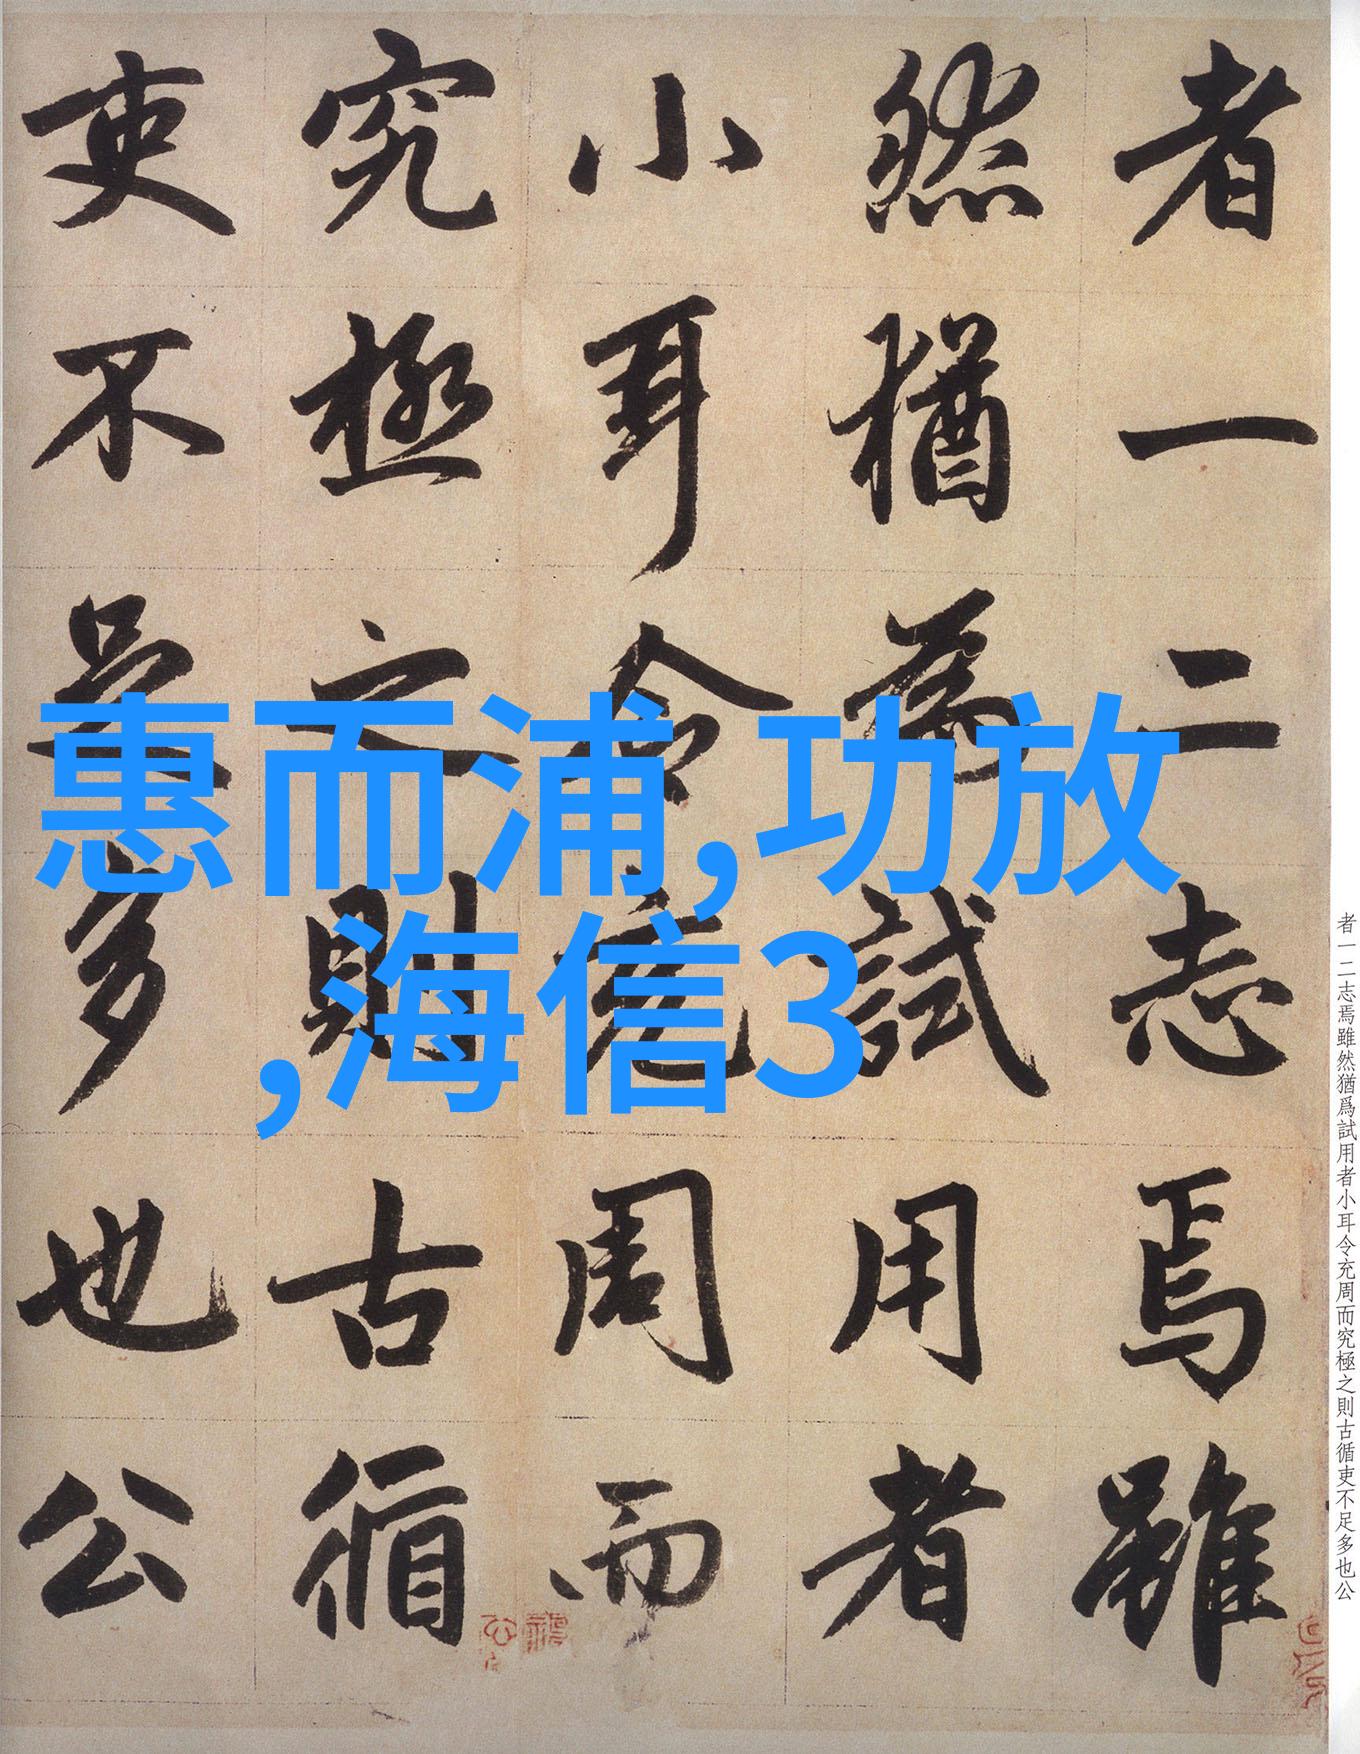 者一二志焉雖
然猶為試用者
小耳令充周而
究極之則古循
吏不足多也公
惠而浦,功放
,海信3
者一二志焉雖然猶爲試用者小耳令充周而究極之則古循吏不足多也公